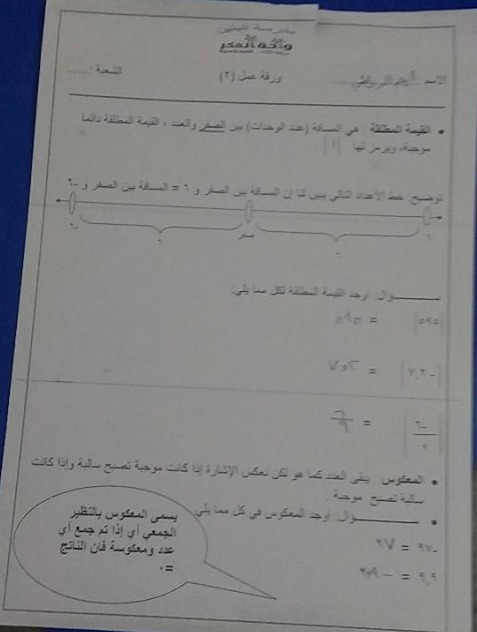 مدرسة للبنين
واحة الفكر
الاسم
ورقة عمل (٢)
الشعبة :......
القيمة المطلقة : هي المسافة (عدد الوحدات) بين الصفر والعدد ، القيمة المطلقة دائما
موجبة، ويرمز لها | |
توضيح: خط الأعداد التالي يبين لنا إن المسافة بين الصفر و ٦ = المسافة بين الصفر و -٦
-٦ صفر ٦
٦ ٦
ســـــــؤال: أوجد القيمة المطلقة لكل مما يلي:
= ٥٩٥
=
= ٦/٩
المعكوس : يبقى العدد كما هو لكن نعكس الإشارة إذا كانت موجبة تصبح سالبة وإذا كانت
سالبة تصبح موجبة .
ســـــــؤال: أوجد المعكوس في كل مما يلي
-٩٧ =
٩,٩ =
يسمى المعكوس بالنظير
الجمعي أي إذا تم جمع أي
عدد ومعكوسة فان الناتج
=٠